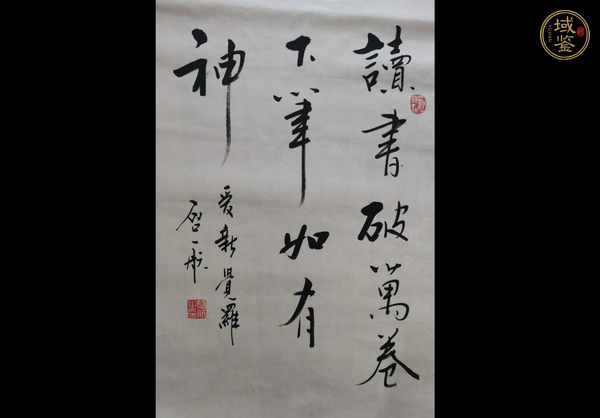 讀書破萬卷
下筆如有
神
愛新覺羅
啓一戕
域鑒